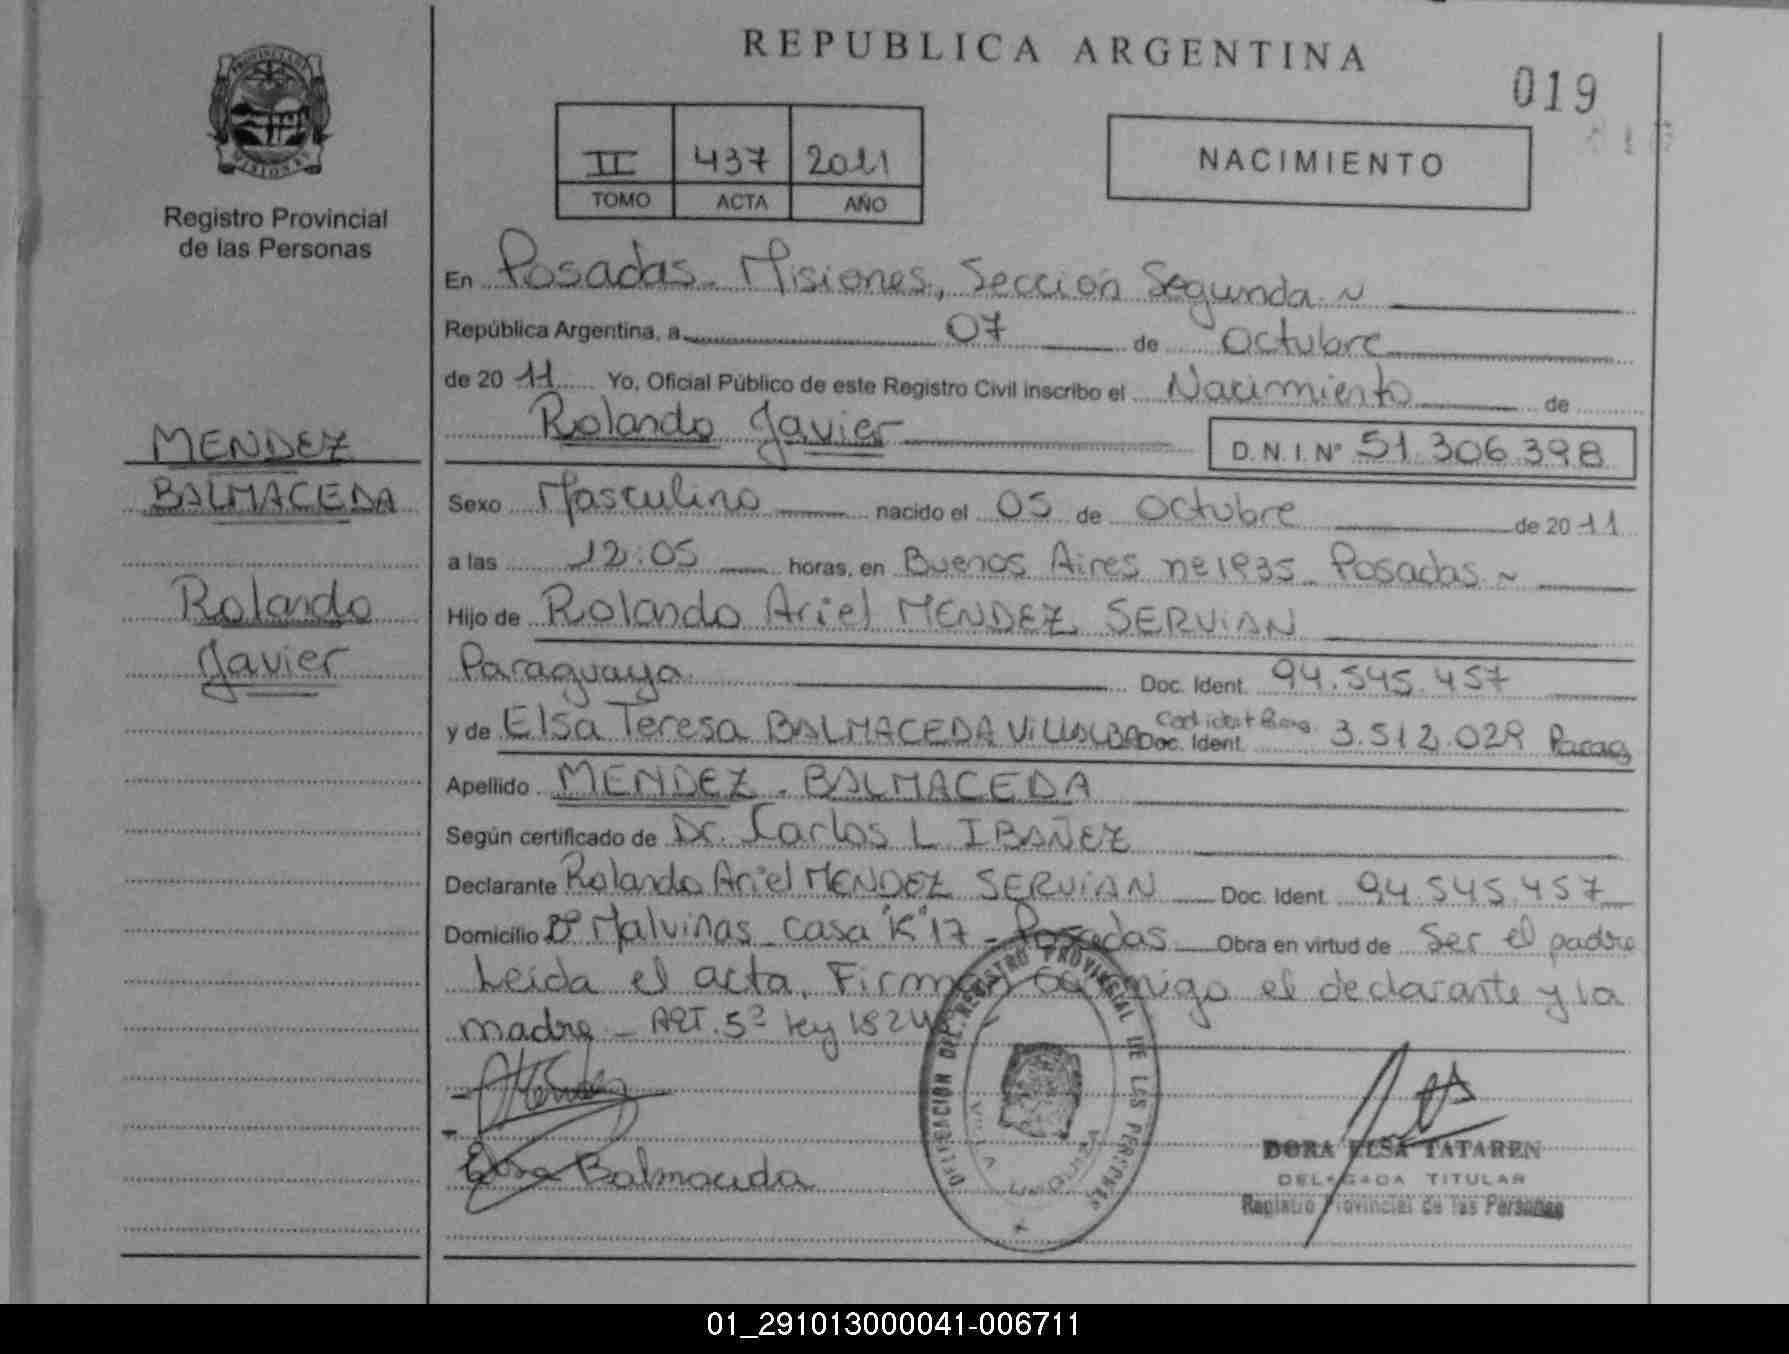 REPUBLICA ARGENTINA
019
PROVINCIA DE MISIONES
Registro Provincial
de las Personas
II 437 2011
TOMO ACTA AÑO
NACIMIENTO
En Posadas - Misiones, Sección Segunda
República Argentina, a 07 de Octubre
de 20 11 Yo, Oficial Público de este Registro Civil inscribo el Nacimiento de
Rolando Javier D.N.I. Nº 51.306.398
MENDEZ
BALMACEDA
Rolando
Javier
Sexo Masculino nacido el 05 de Octubre de 20 11
a las 12:05 horas, en Buenos Aires nº 1935 Posadas
Hijo de Rolando Ariel MENDEZ SERVIAN
Paraguaya Doc. Ident. 94.545.457
y de Elsa Teresa BALMACEDA VILLALBA Doc. Ident. 3.512.029 Parag
Apellido MENDEZ - BALMACEDA
Según certificado de Dr. Carlos L IBAÑEZ
Declarante Rolando Ariel MENDEZ SERVIAN Doc. Ident. 94.545.457
Domicilio Bº Malvinas Casa "K" 17 - Posadas Obra en virtud de Ser el padre
Leida el acta, Firman conmigo el declarante y la
madre - ART. 5º ley 18248
DELEGACION DEL REGISTRO PROVINCIAL DE LAS PERSONAS
VILLA URQUIZA
Elsa Balmaceda
DORA ELSA TATAREN
DELEGADA TITULAR
Registro Provincial de las Personas
01_291013000041-006711